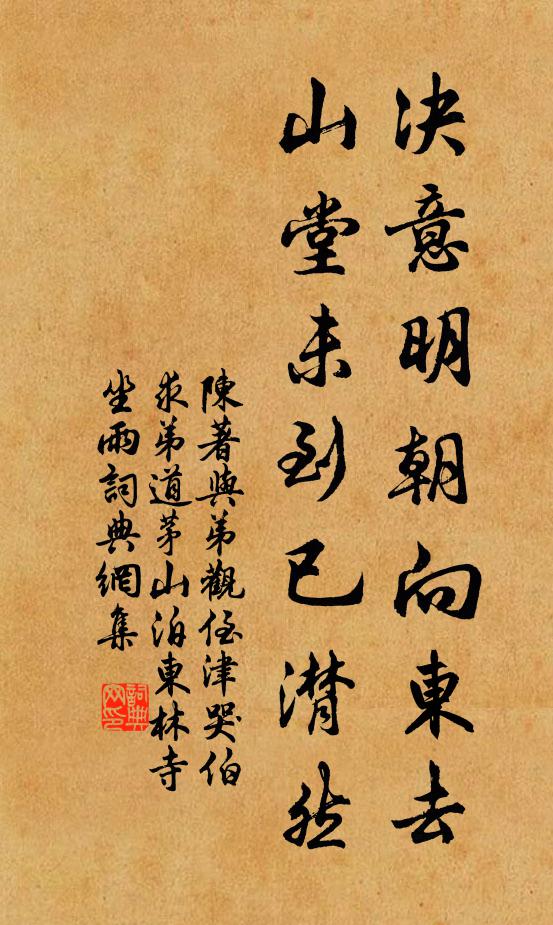 决意明朝向東去
山堂未到已潸然
陳著與弟觀侄津哭伯
求弟道茅山泊東林寺
坐雨詞典網集
詞典網印